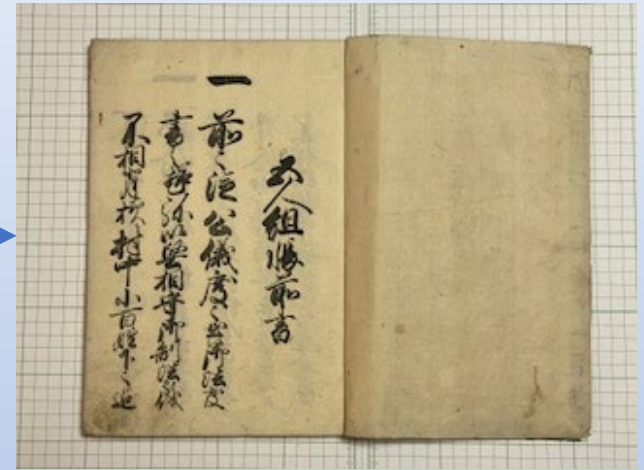 五人組帳前書
一 前々従公儀度々出御法度
書之趣弥以堅相守御制法儀
不相背様村中小百姓下々迄